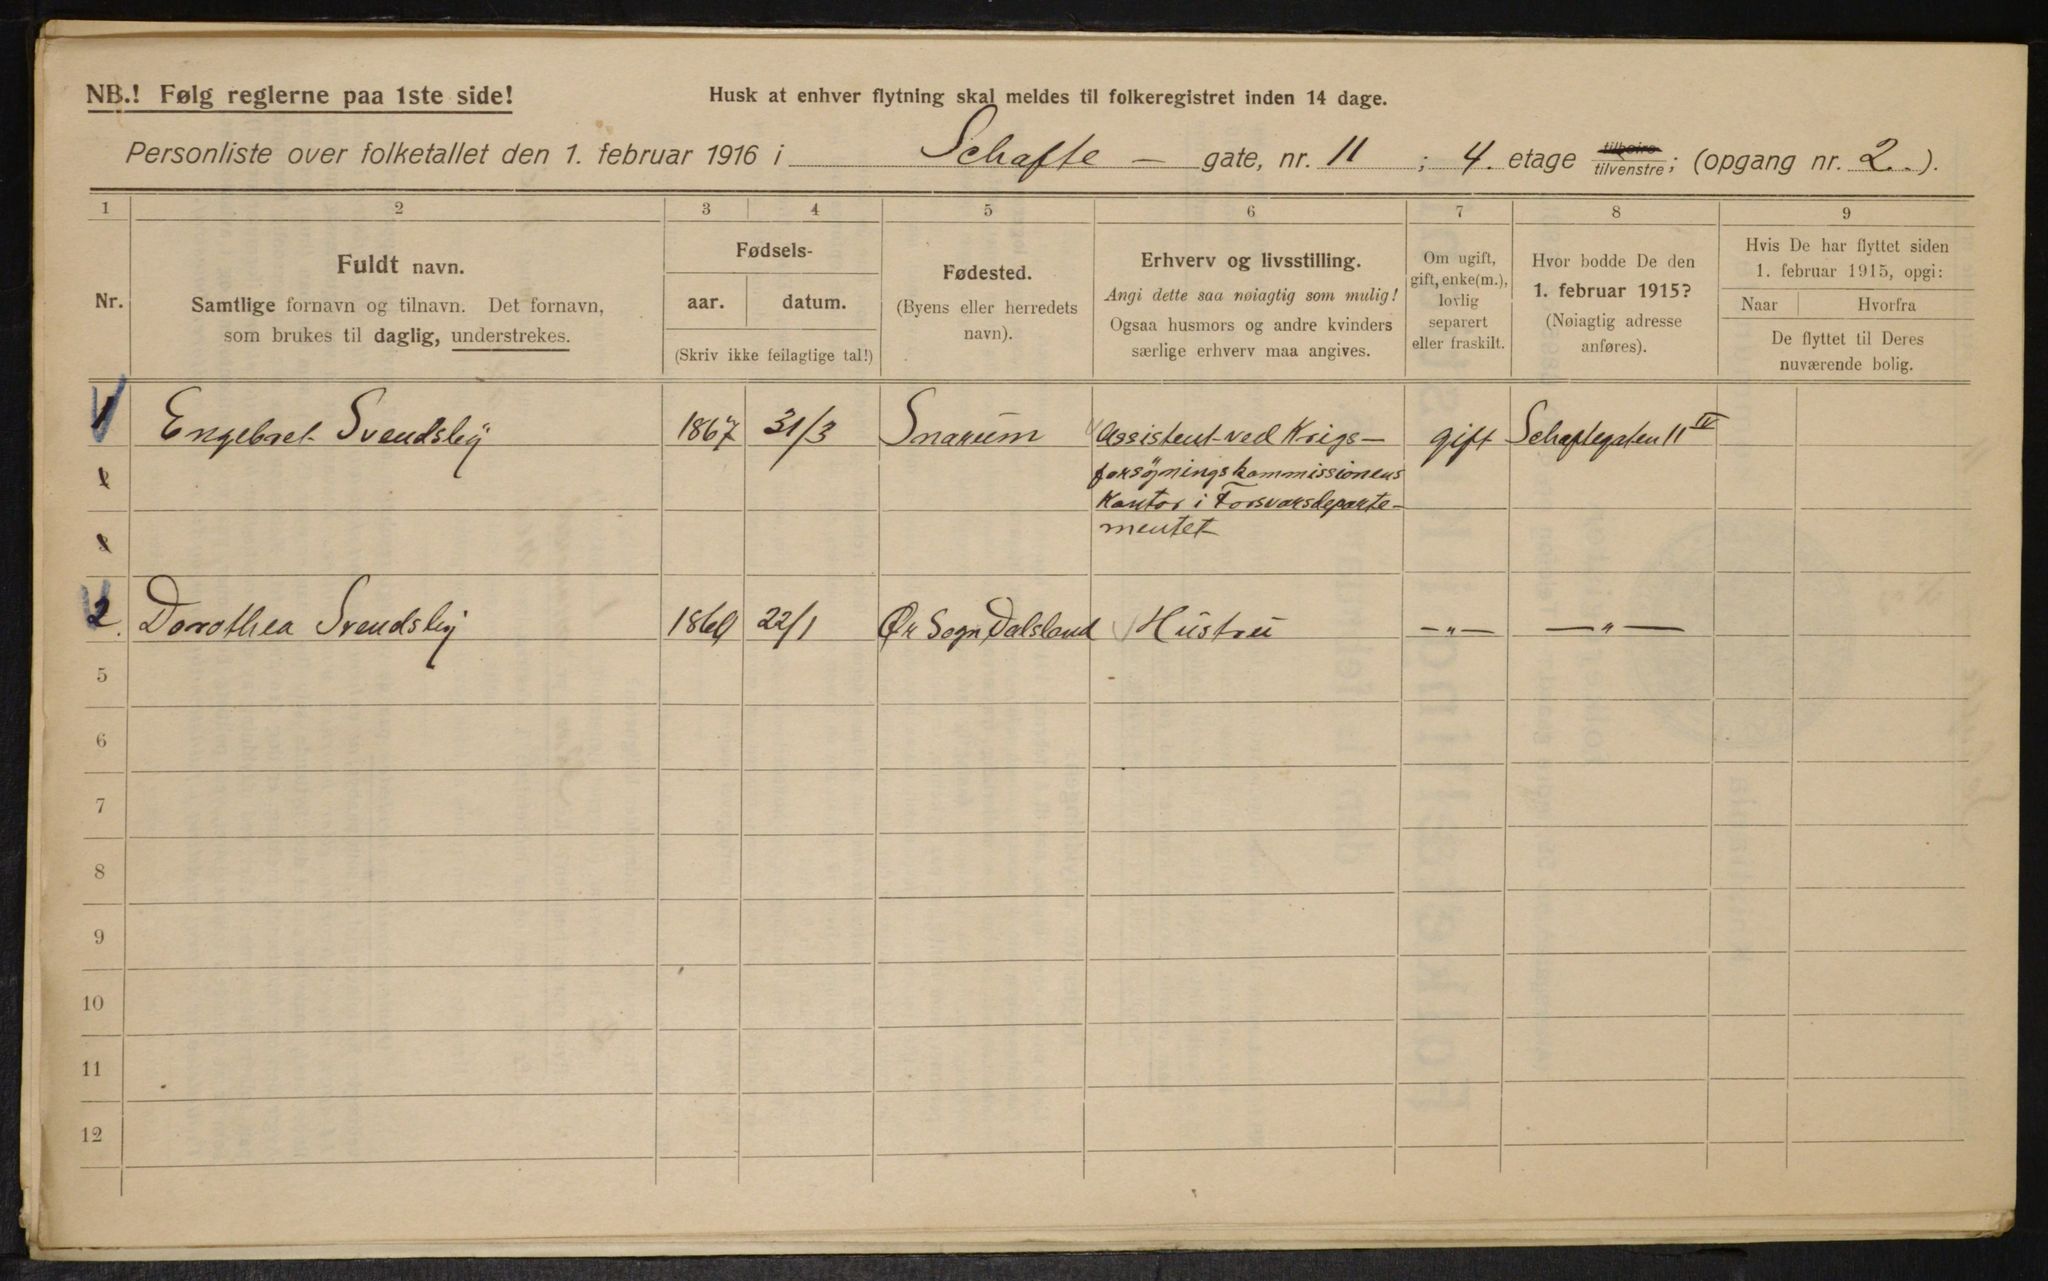 NB.! Følg reglerne paa 1ste side!
Husk at enhver flytning skal meldes til folkeregistret inden 14 dage.
Personliste over folketallet den 1. februar 1916 i Schafte - gate, nr. 11 ; 4. etage tilhøire tilvenstre; (opgang nr. 2. ).
1 2 3 4 5 6 7 8 9
Nr.
Fuldt navn.
Samtlige fornavn og tilnavn. Det fornavn,
som brukes til daglig, understrekes.
Fødsels-
aar. datum.
(Skriv ikke feilagtige tal!)
Fødested.
(Byens eller herredets
navn).
Erhverv og livsstilling.
Angi dette saa nøiagtig som mulig!
Ogsaa husmors og andre kvinders
særlige erhverv maa angives.
Om ugift,
gift, enke(m.),
lovlig
separert
eller fraskilt.
Hvor bodde De den
1. februar 1915?
(Nøiagtig adresse
anføres).
Hvis De har flyttet siden
1. februar 1915, opgi:
Naar Hvorfra
De flyttet til Deres
nuværende bolig.
1 Engebret Svendsby 1867 31/3 Snarum Assistent ved Krigs-
forsögningskommissionens
Kontor i Forsvarsdeparte-
mentet
gift Schaftegaten 11 IV
2. Dorothea Svendsby 22/1 Ør Sogn Dalsland Hustru -„- -„-
5
6
7
8
9
10
11
12